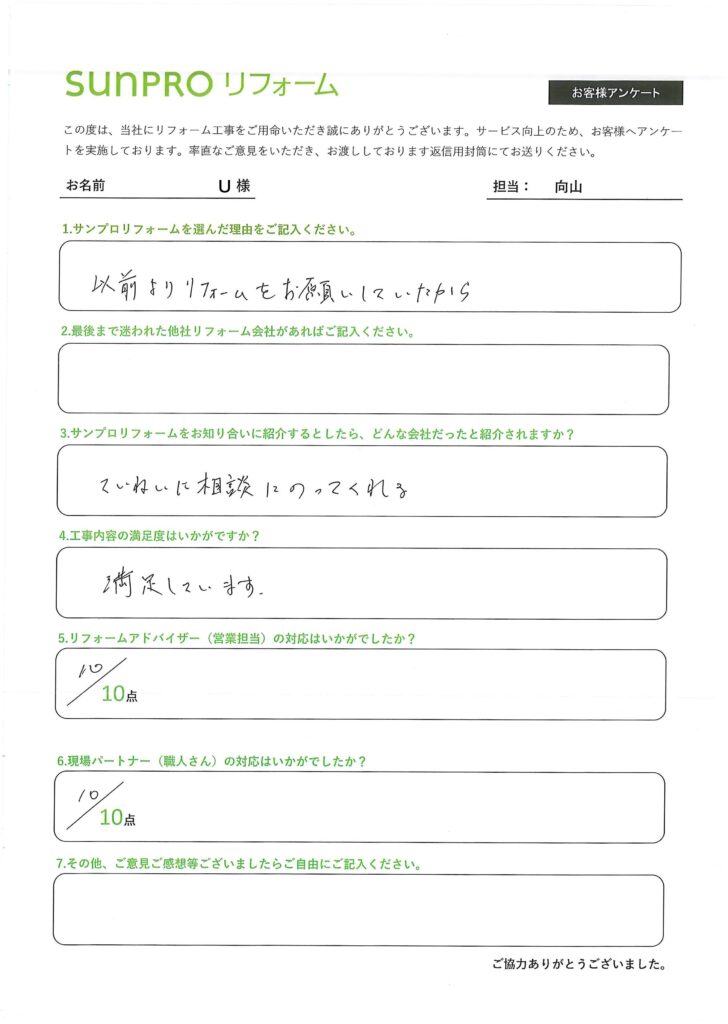 SUNPRO リフォーム
お客様アンケート
この度は、当社にリフォーム工事をご用命いただき誠にありがとうございます。サービス向上のため、お客様へアンケー
トを実施しております。率直なご意見をいただき、お渡ししております返信用封筒にてお送りください。
お名前 U 様 担当： 向山
1.サンプロリフォームを選んだ理由をご記入ください。
以前よりリフォームをお願いしていたから
2.最後まで迷われた他社リフォーム会社があればご記入ください。
3.サンプロリフォームをお知り合いに紹介するとしたら、どんな会社だったと紹介されますか？
ていねいに相談にのってくれる
4.工事内容の満足度はいかがですか？
満足しています.
5.リフォームアドバイザー（営業担当）の対応はいかがでしたか？
10/10点
6.現場パートナー（職人さん）の対応はいかがでしたか？
10/10点
7.その他、ご意見ご感想等ございましたらご自由にご記入ください。
ご協力ありがとうございました。